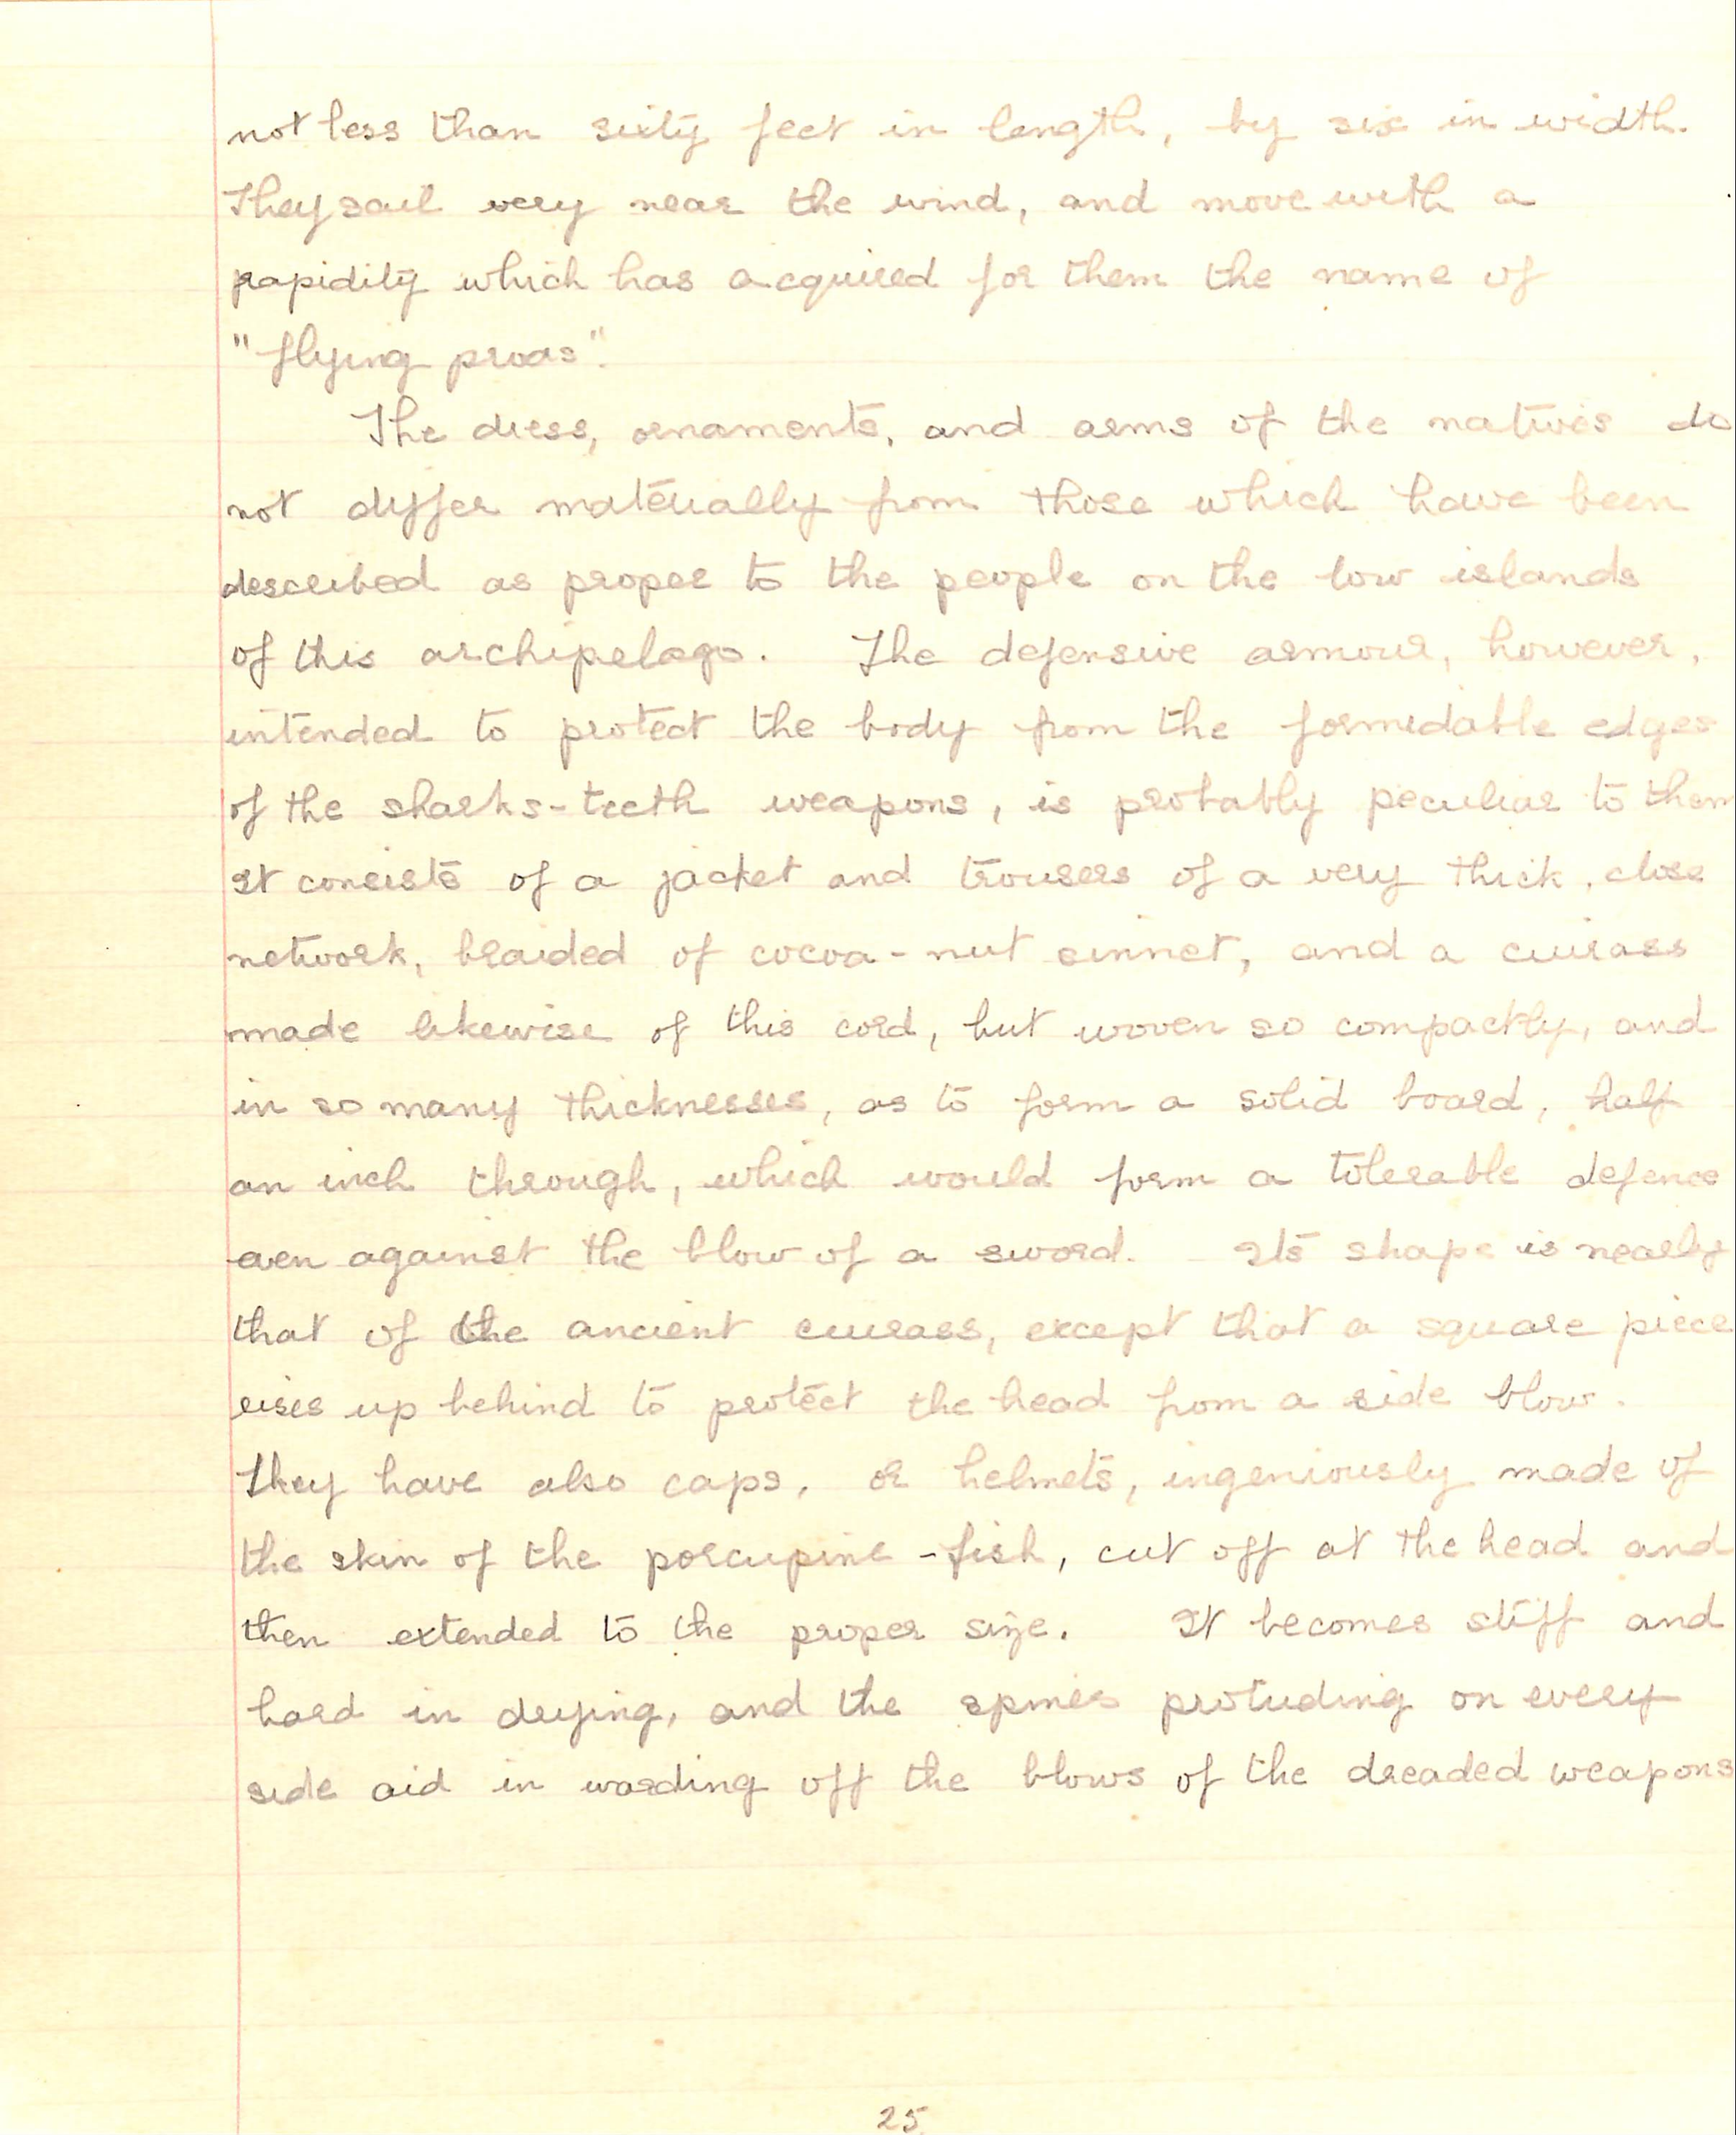 not less than sixty feet in length, by six in width.
They sail very near the wind, and move with a
rapidity which has acquired for them the name of
"flying proas".
The dress, ornaments, and arms of the natives do
not differ materially from those which have been
described as proper to the people on the low islands
of this archipelago. The defensive armour, however,
intended to protect the body from the formidable edges
of the sharks-teeth weapons, is probably peculiar to them
It consists of a jacket and trousers of a very thick, close
network, braided of cocoa-nut sinnet, and a cuirass
made likewise of this cord, but woven so compactly, and
in so many thicknesses, as to form a solid board, half
an inch through, which would form a tolerable defence
even against the blow of a sword. Its shape is nearly
that of the ancient cuirass, except that a square piece
rises up behind to protect the head from a side blow.
They have also caps, or helmets, ingeniously made of
the skin of the porcupine-fish, cut off at the head and
then extended to the proper size. It becomes stiff and
hard in drying, and the spines protuding on every
side aid in warding off the blows of the dreaded weapons
25